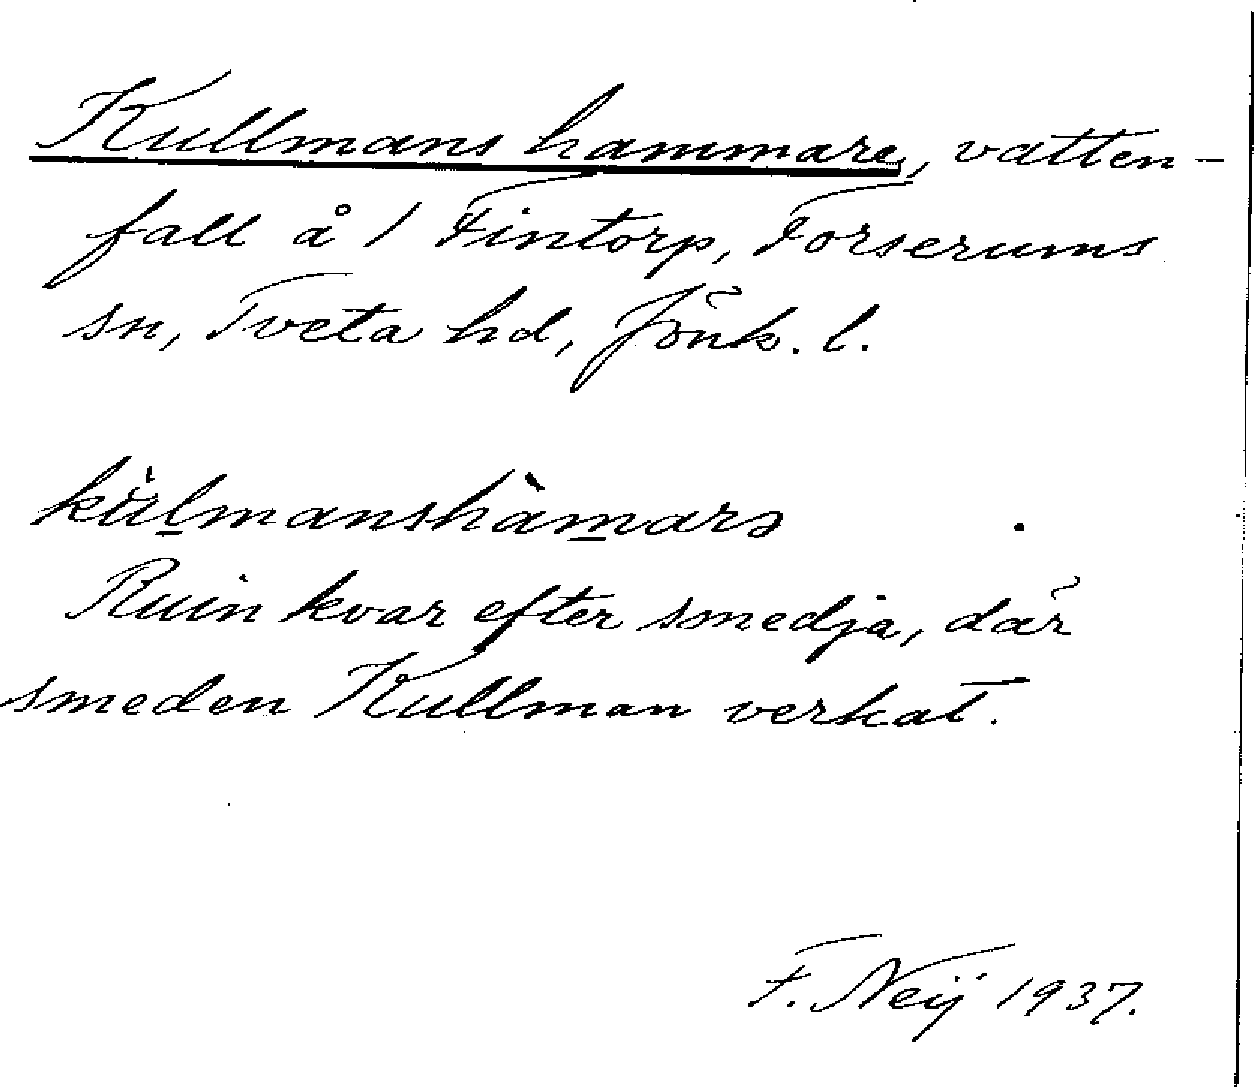 Kullmans hammare, vatten-
fall å 1 Fintorp, Forserums
sn, Tveta hd, Jönk. l.
kùl̠manshàm̠arə
Ruin kvar efter smedja, där
smeden Kullman verkat.
F. Neij 1937.